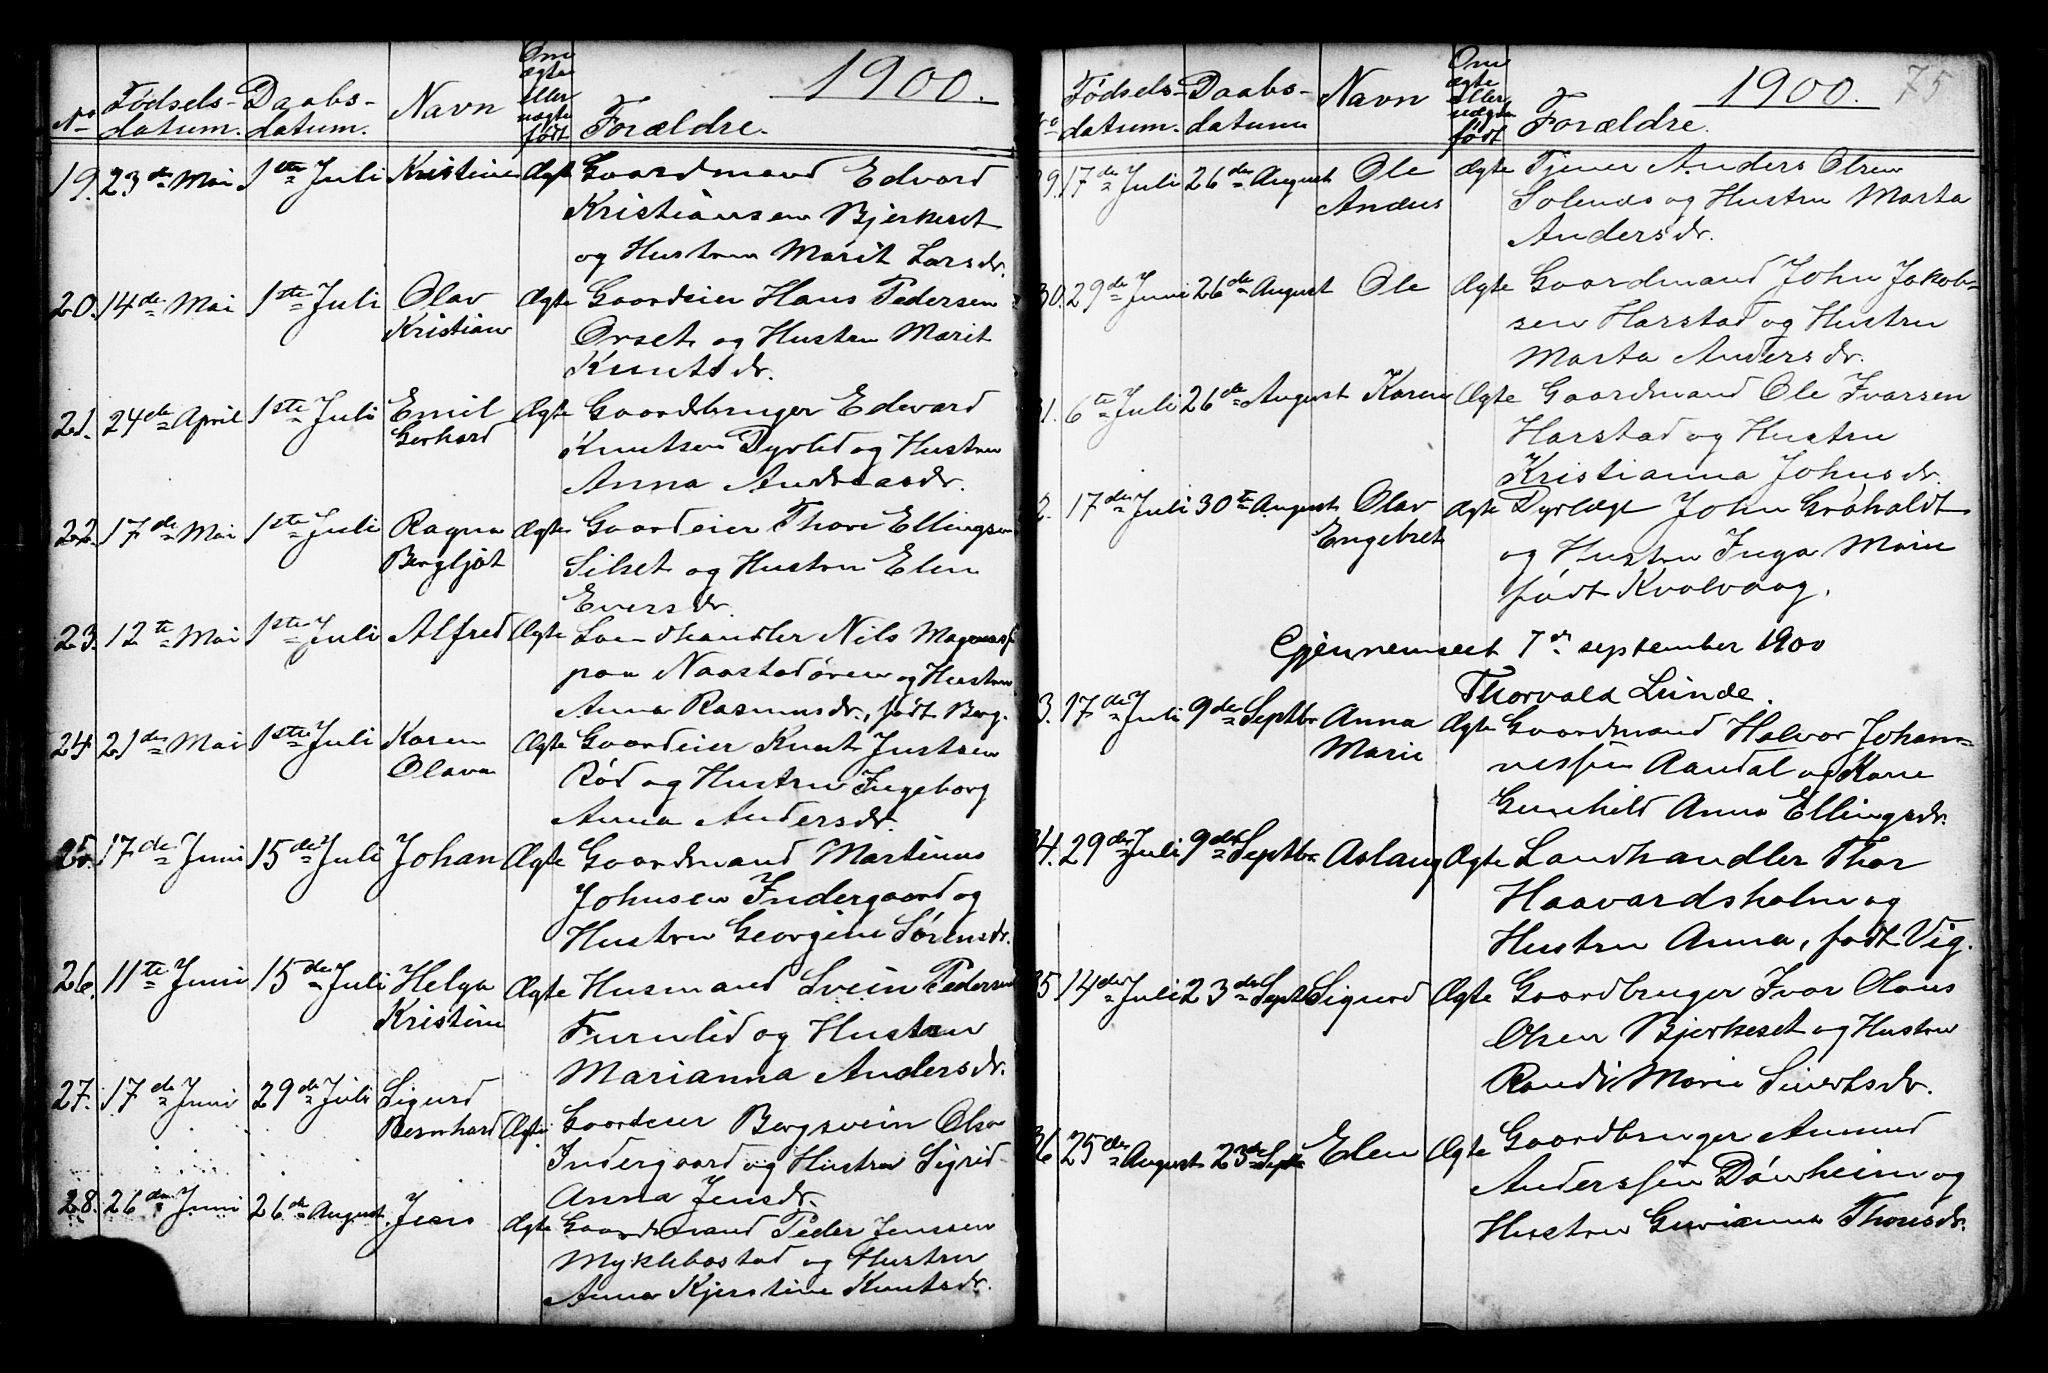 1900.
No Fødsels-datum. Daabs-datum. Navn Om ægte eller uægte født Forældre.
19. 23de Mai 1ste Juli Kristine Ægte Gaardmand Edvard
Kristiansen Bjerkeset
og Hustru Marit Larsdr.
20. 14de Mai 1ste Juli Olav Ægte Gaardeier Hans Pedersen
Kristian Orset og Hustru Marit
Knutsdr.
21. 24de April 1ste Juli Emil Ægte Gaardbruger Edvard
Gerhard Knutsen Dyrlid og Hustru
Anna Andreasdr.
22. 17de Mai 1ste Juli Ragna Ægte Gaardeier Thore Ellingsen
Bergljot Silset og Hustru Elen
Eversdr.
23. 12te Mai 1ste Juli Alfred Ægte Landhandler Nils
paa Naastadøren og Hustru
Anna Rasmusdr., født Berg.
24. 21de Mai 1ste Juli Karen Ægte Gaardeier Knut Justsen
Olava Rød og Hustru Ingeborg
Anna Andersdr.
25. 17de Juni 15de Juli Johan Ægte Gaardmand Martinus
Johnsen Indergaard og
Hustru Georgine Sørensdr.
26. 11te Juni 15de Juli Helga Ægte Husmand Svein Pedersen
Kristine Furulid og Hustru
Marianna Andersdr.
27. 17de Juni 29de Juli Sigurd
Bernhard Ægte Gaardeier Bergsvein Olsen
Indergaard og Hustru Sigrid
Anna Jensdr.
28. 26de Juni 26de August Jens Ægte Gaardmand Peder Jenssen
Myklebostad og Hustru
Anna Kjerstine Knutsdr.
1900. 75
Fødsels-datum. Daabs-datum Navn Om ægte eller uægte født Forældre.
29. 17de Juli 26de August Ole Ægte Tjener Anders Olsen
Anders Solenes og Hustru Marta
Andersdr.
30. 29de Juni 26de August Ole Ægte Gaardmand John Jakob-
sen Harstad og Hustru
Marta Andersdr.
31. 6te Juli 26de August Karen Ægte Gaardmand Ole Ivarsen
Harstad og Hustru
Kristianna Johnsdr.
2. 17de Juli 30te August Olav Ægte Dyrlæge John Grøholdt
Engebret og Hustru Inga Marie
født Kvalvaag.
Gjennemseet 7de september 1900
Thorvald Lunde.
3. 17de Juli 9de Septbr Anna Ægte Gaardmand Halvor Johan-
Marie nessen Aandal og Kone
Gunhild Anna Ellingsdr.
34. 29de Juli 9de Septbr Aslaug Ægte Landhandler Thor
Haavardsholm og
Hustru Anna, født Vig.
35 14de Juli 23de Septbr Sigurd Ægte Gaardbruger Ivar Olaus
Olsen Bjerkeset og Hustru
Randi Marie Sivertsdr.
36 25de August 23de Septbr Elen Ægte Gaardbruger Amund
Anderssen Dønheim og
Hustru Gurianna Thoresdr.